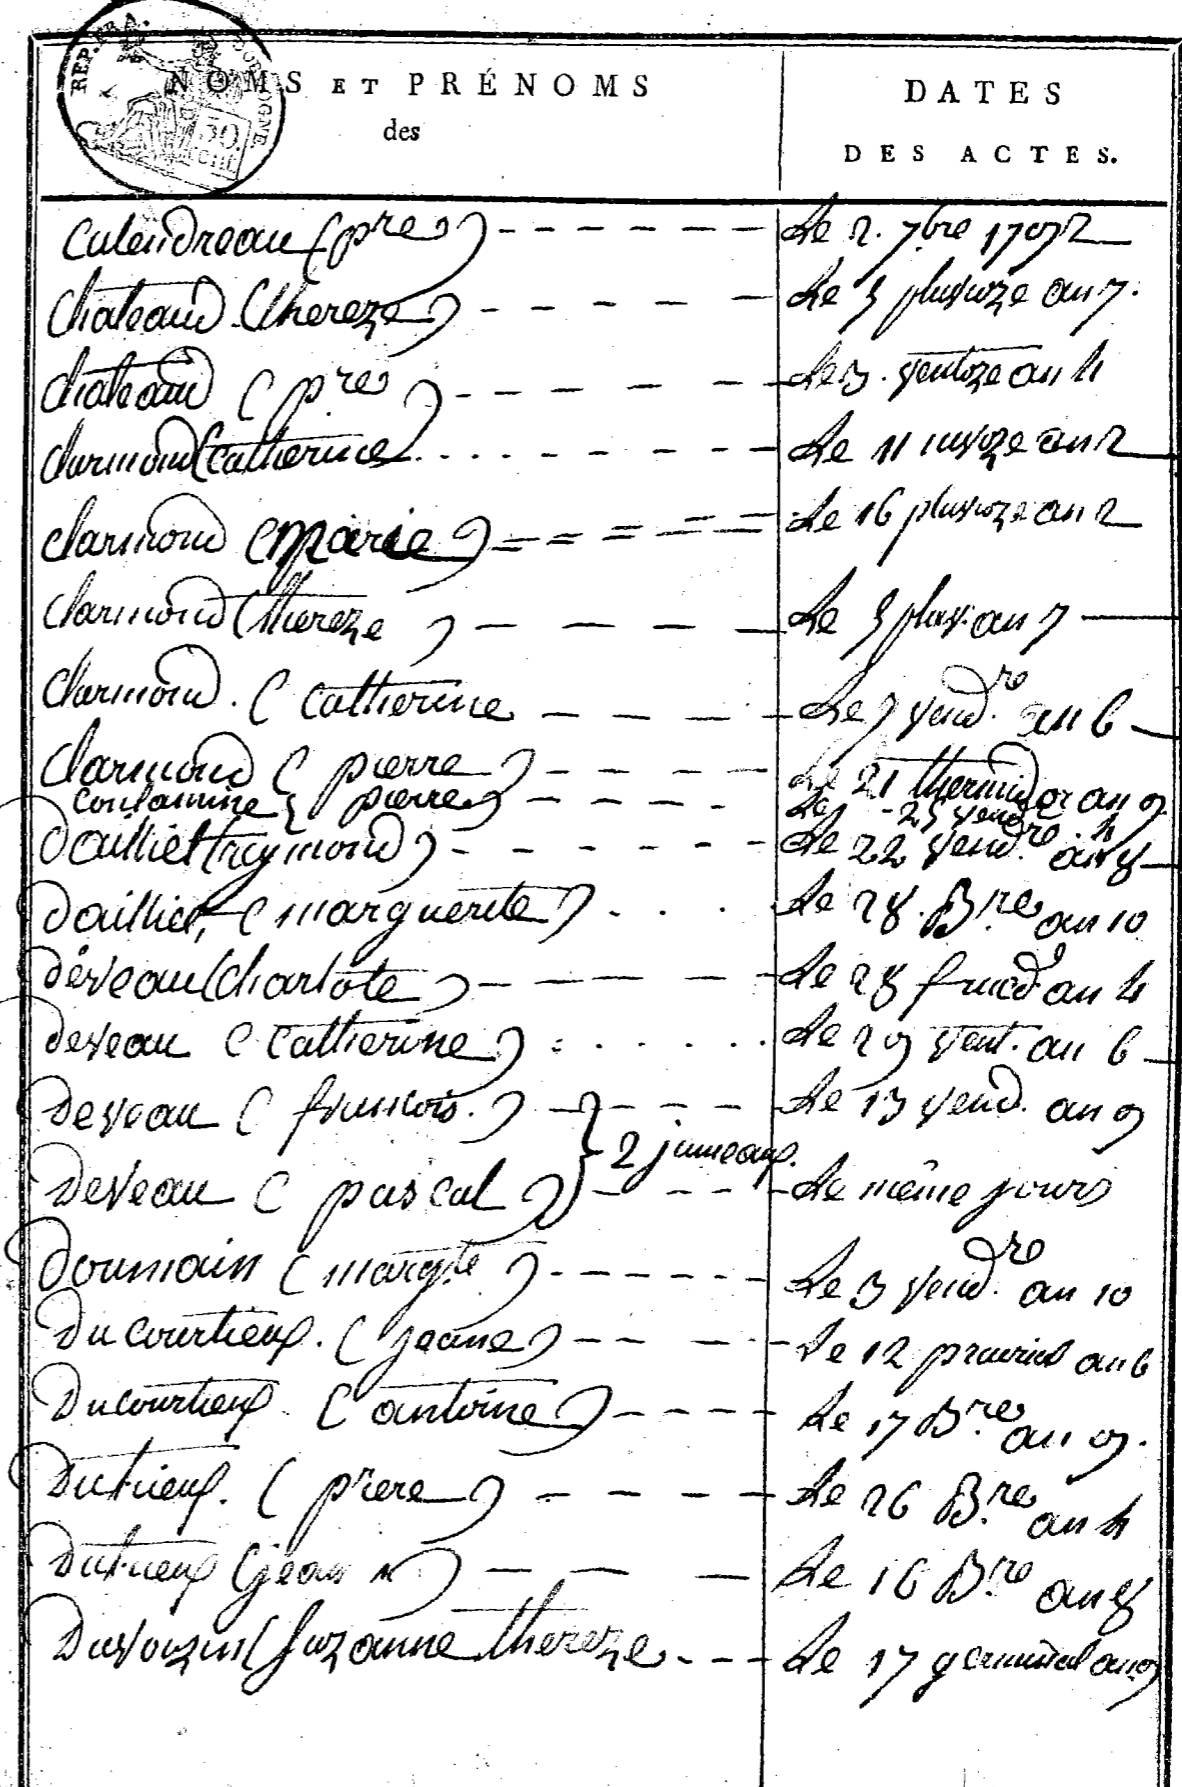 REP. FRA. DORDOGNE
50 cent
NOMS ET PRÉNOMS
des
DATES
DES ACTES.
Calendreau (pre) Le 2. 7bre 1792
Chateaud (thereze) Le 5 pluvioze an 7.
Chateaud (pre) Le 3. ventoze an 4
Clarmond (Catherine) Le 11 nivoze an 2
Clarmond (Marie) Le 16 pluvioze an 2
Clarmond (thereze) Le 5 pluv. an 7
Clarmond. (Catherine Le 7 vend.re an 6
Clarmond (pierre) Le 21 thermidor an 9
Contamine (pierre) Le 25 vendre. 4
Dailliet (reymond) Le 22 vend.re an 8
Dailliet, (marguerite) Le 28. B.re an 10
Deveau (Charlote) Le 28 fruct an 4
Deveau (Catherine) Le 29 vent. an 6
Deveau (francois.) Le 13 vend. an 9
2 jumeaux.
Deveau (pascal) Le même jours
Doumain (margte) Le 3 vend.re an 10
Ducourtieux. (jeanne) Le 12 prairial an 6
Ducourtieux. (antoine) Le 17 B.re an 9.
Dutrieux. (piere) Le 26 B.re an 4
Dutrieux (jean) Le 16 B.re an 8
Duvoizin (Suzanne thereze Le 17 germinal an 9